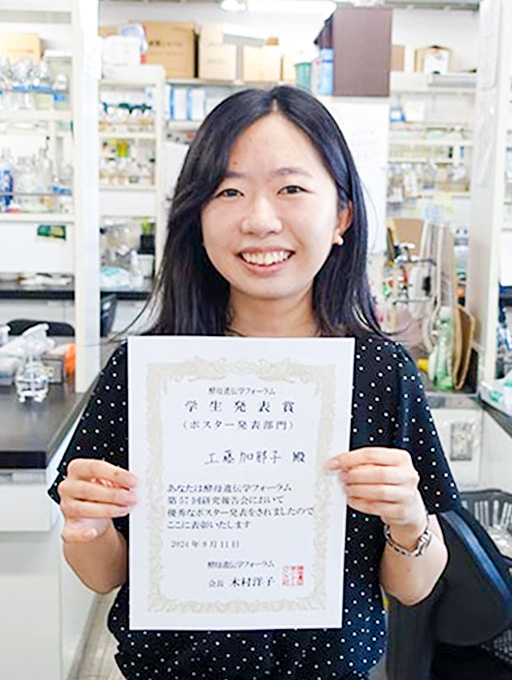 酵母遺伝学フォーラム
学生発表賞
(ポスター発表部門)
工藤加那子 殿
あなたは酵母遺伝学フォーラム
第57回研究報告会において
優秀なポスター発表をされましたので
ここに表彰いたします
2024年9月11日
酵母遺伝学フォーラム
会長 木村洋子